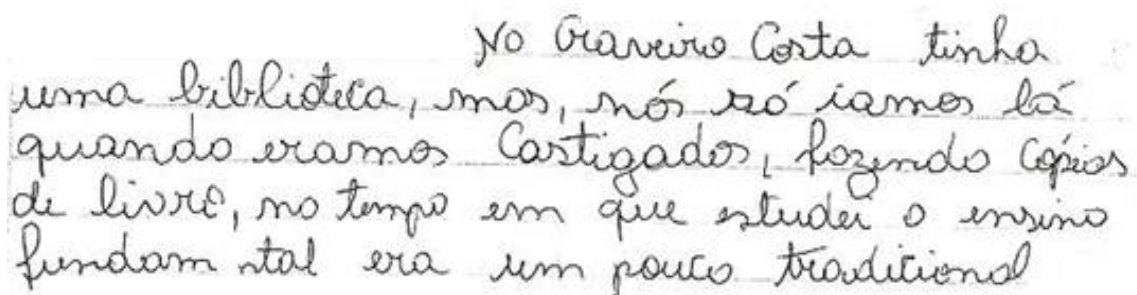 No Craveiro Costa tinha
uma biblioteca, mas, nós só iamos lá
quando eramos Castigados, fazendo Cópias
de livro, no tempo em que estudei o ensino
fundam ntal era um pouco tradicional